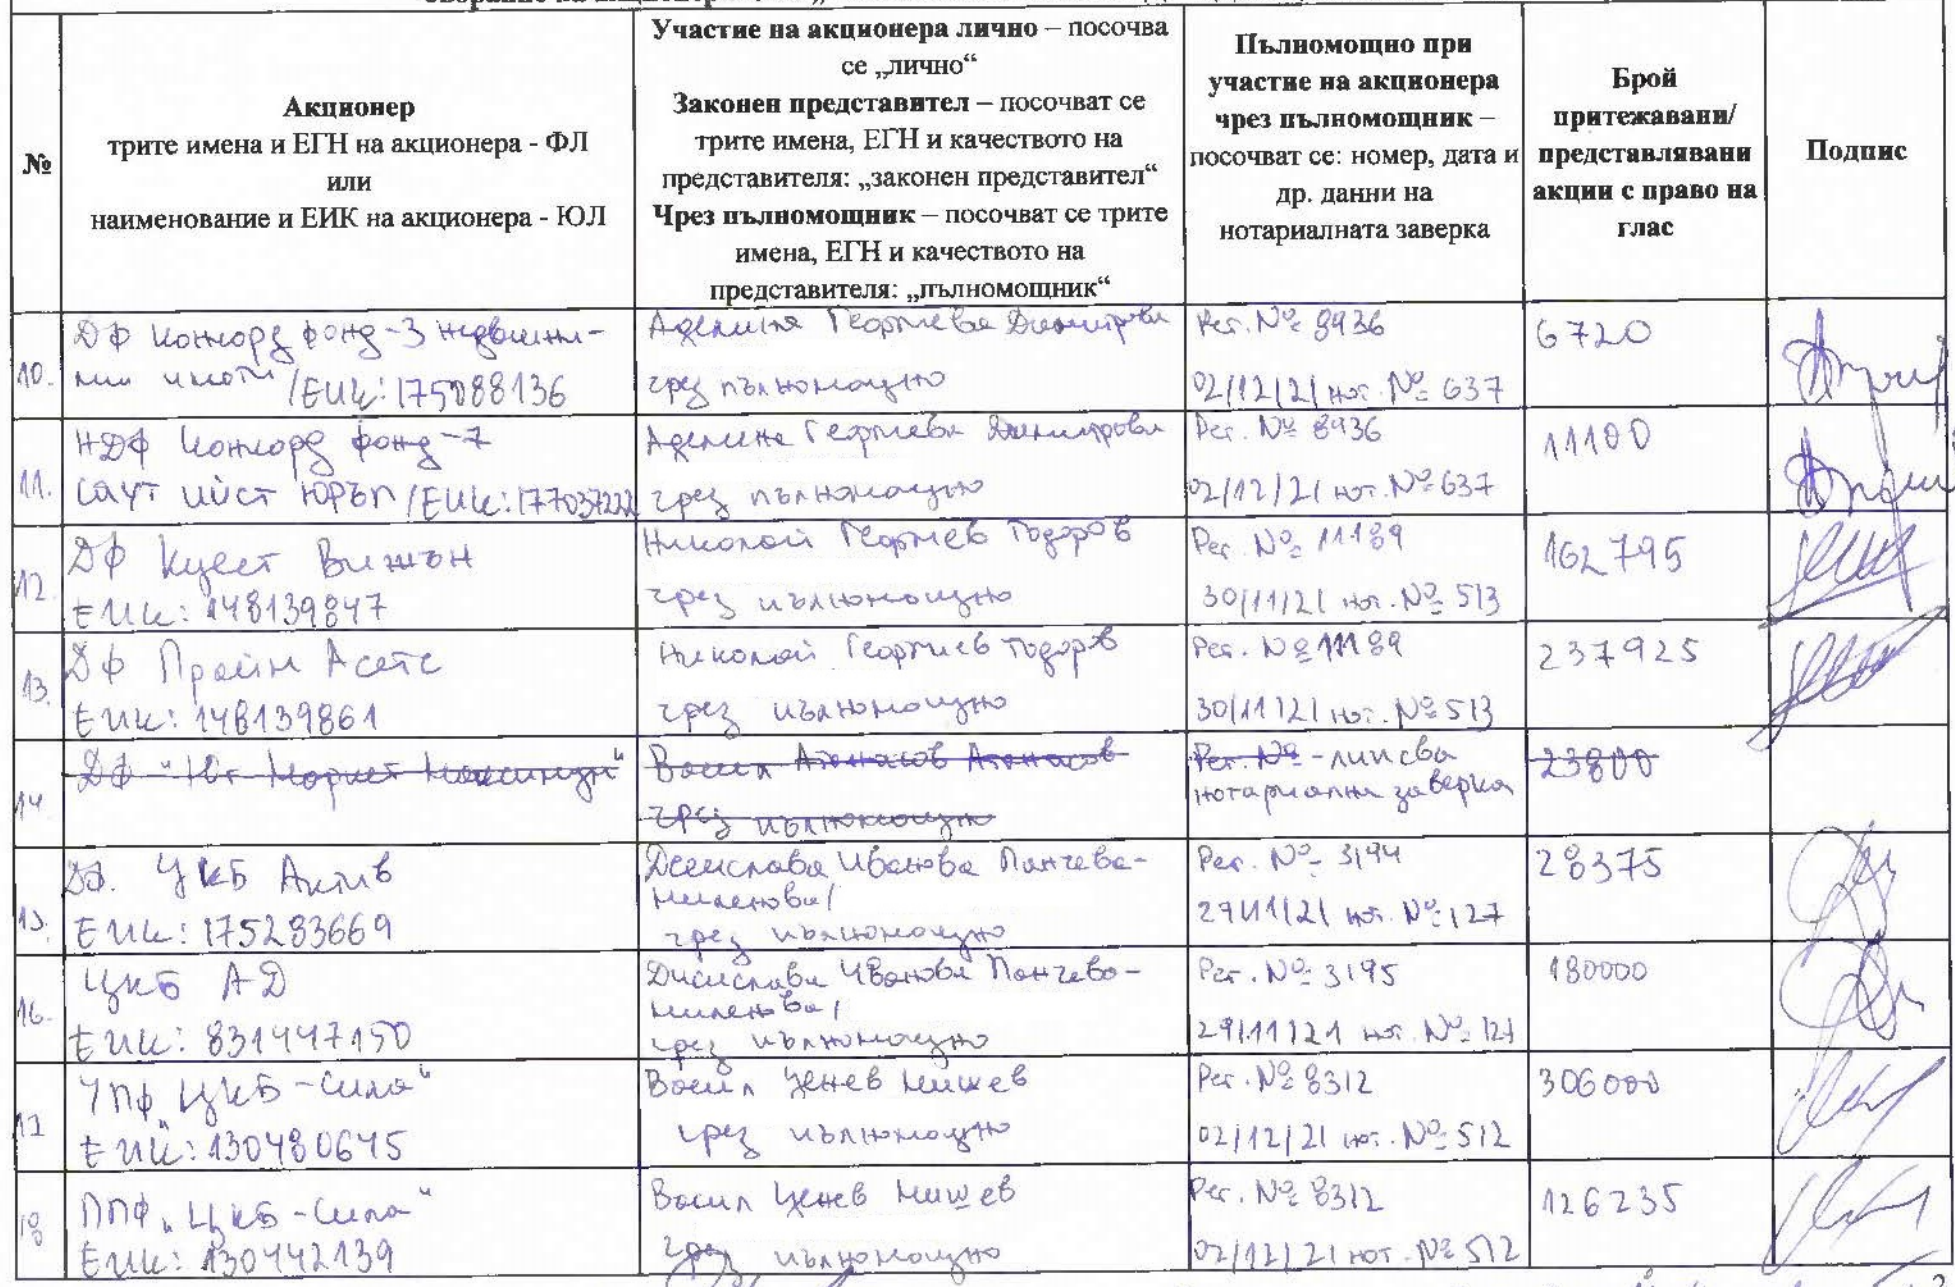 №
Акционер
трите имена и ЕГН на акционера - ФЛ
или
наименование и ЕИК на акционера - ЮЛ
Участие на акционера лично – посочва
се „лично“
Законен представител – посочват се
трите имена, ЕГН и качеството на
представителя: „законен представител“
Чрез пълномощник – посочват се трите
имена, ЕГН и качеството на
представителя: „пълномощник“
Пълномощно при
участие на акционера
чрез пълномощник –
посочват се: номер, дата и
др. данни на
нотариалната заверка
Брой
притежавани/
представлявани
акции с право на
глас
Подпис
10.
ДФ Конкорд фонд-3 недвижи-
ми имоти /ЕИК: 175088136
Аделина Георгиева Димитрова
чрез пълномощно
Рег. № 8936
02/12/21 нот. № 637
6720
11.
НДФ Конкорд фонд-7
Саут Ийст Юръп /ЕИК: 177037222
Аделина Георгиева Димитрова
чрез пълномощно
Рег. № 8936
02/12/21 нот. № 637
11100
12.
ДФ Куест Вижън
ЕИК: 148139847
Николай Георгиев Тодоров
чрез пълномощно
Рег. № 11189
30/11/21 нот. № 513
162795
13.
ДФ Прайм Асетс
ЕИК: 148139861
Николай Георгиев Тодоров
чрез пълномощно
Рег. № 11189
30/11/21 нот. № 513
237925
14.
ДФ "Юг Маркет Максимум"
Васил Атанасов Атанасов
чрез пълномощно
Рег. № - липсва
нотариална заверка
23800
15.
ДФ. ЦКБ Актив
ЕИК: 175283669
Десислава Иванова Панчева-
Миленова/
чрез пълномощно
Рег. № 3194
29/11/21 нот. № 127
28375
16.
ЦКБ АД
ЕИК: 831447150
Десислава Иванова Панчева-
Миленова/
чрез пълномощно
Рег. № 3195
29/11/21 нот. №
180000
17
УПФ „ЦКБ-Сила“
ЕИК: 130480645
Васил Ценев Мишев
чрез пълномощно
Рег. № 8312
02/12/21 нот. № 512
306000
18
ППФ „ЦКБ-Сила“
ЕИК: 130442139
Васил Ценев Мишев
чрез пълномощно
Рег. № 8312
02/12/21 нот. № 512
126235